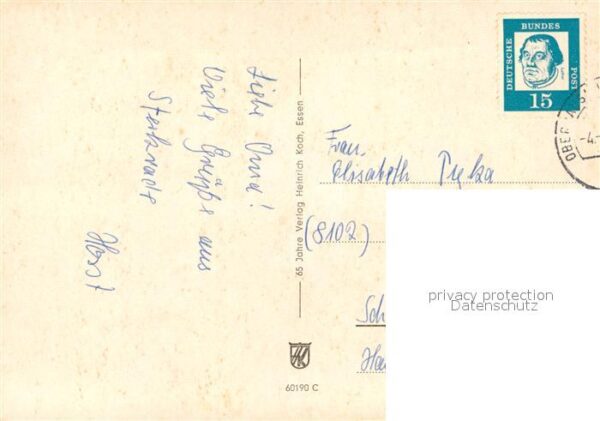 Liebe Oma!
Viele Grüße aus
Sterkrade
Horst
65 Jahre Verlag Heinrich Koch, Essen
60190 C
DEUTSCHE
BUNDES
POST
15
OBER
4.
Frau
Elisabeth
(8102)
Sch
Ha
privacy protection
Datenschutz